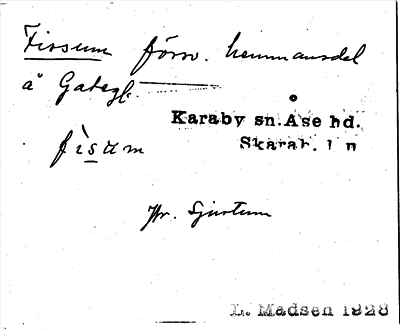 Fissum förr. hemmansdel
å Gategk.
Karaby sn. Åse hd.
Skarab. l n
fìsum
Jfr. Sjustum
L. Madsen 1928